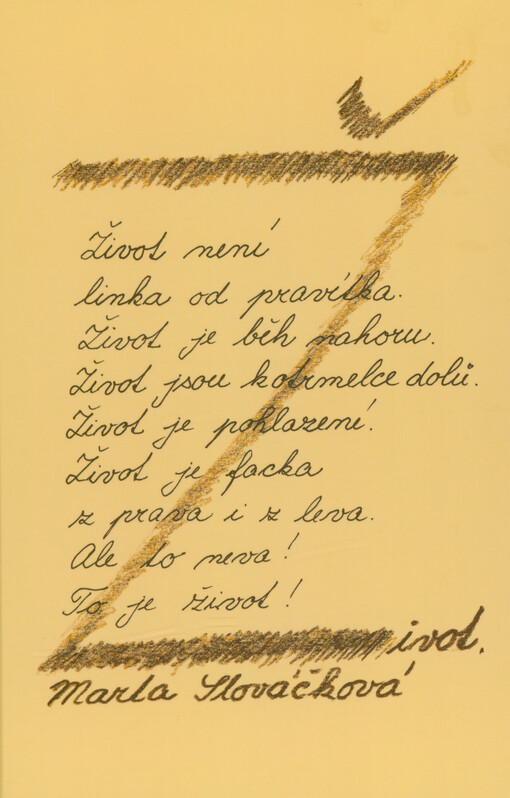 Život není
linka od pravítka.
Život je běh nahoru.
Život jsou kotrmelce dolů.
Život je pohlazení.
Život je facka
z prava i z leva.
Ale to neva!
To je život!
Život.
Marta Slováčková